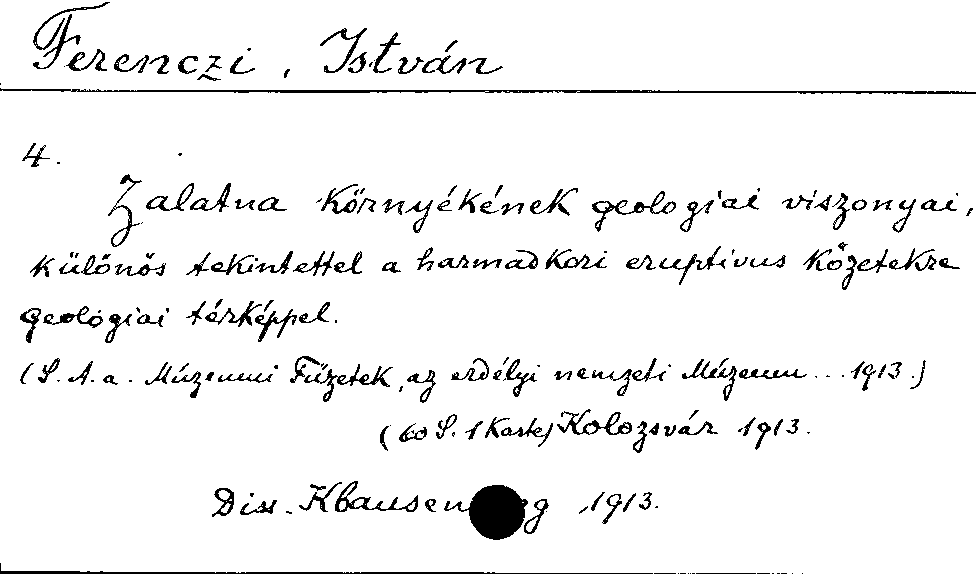 Ferenczi, István
4.
Zalatna környékének geologiai viszonyai,
különös tekintettel a harmadkori eruptivus kőzetekre
geologiai térképpel.
(S. A. a. Múzeumi Füzetek, az erdélyi nemzeti Múzeum ... 1913.)
(60 S. 1 Karte) Kolozsvár 1913.
Diss. Klausen g, 1913.